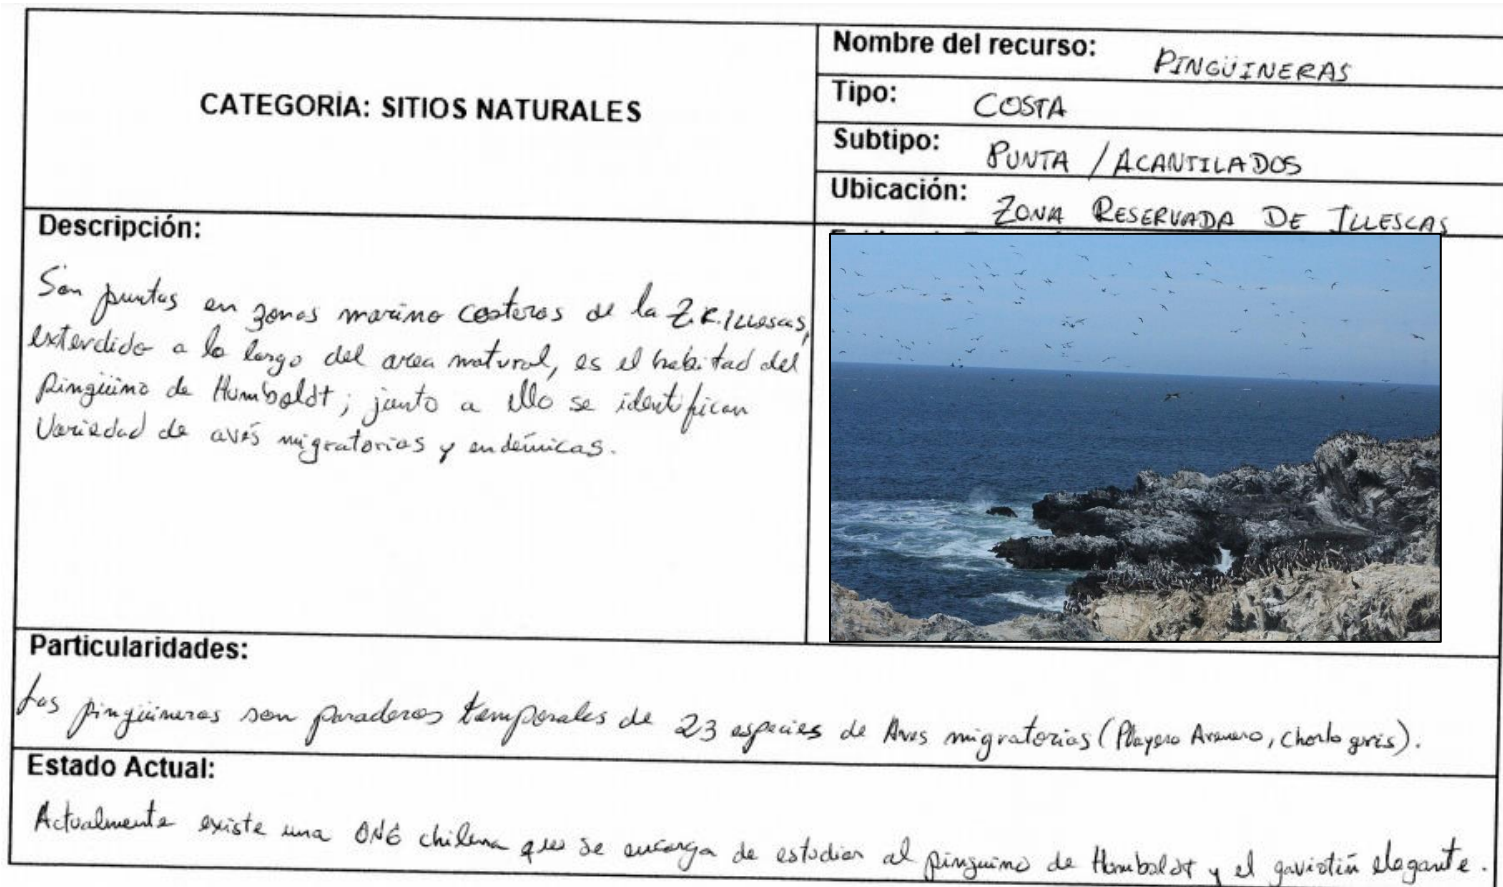 CATEGORÍA: SITIOS NATURALES
Nombre del recurso: PINGÜINERAS
Tipo: COSTA
Subtipo: PUNTA / ACANTILADOS
Ubicación: ZONA RESERVADA DE ILLESCAS
Descripción:
Son puntas en zonas marino costeros de la Z.R. Illescas,
extendido a lo largo del area natural, es el habitad del
pingüino de Humboldt; junto a ello se identifican
Variedad de avés migratorias y endémicas.
Particularidades:
Las pingüineras son paraderos temporales de 23 especies de Aves migratorias (Playero Arenero, Chorlo gris).
Estado Actual:
Actualmente existe una ONG chilena que se encarga de estudiar al pinguino de Humboldt y el gaviotín elegante.